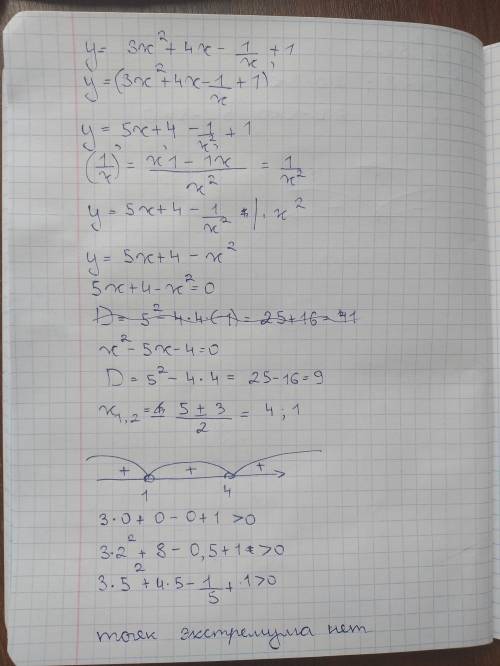 y = 3x² + 4x - 1/x + 1
y = (3x² + 4x - 1/x + 1)'
y = 5x + 4 - 1/x² + 1
(1/x)' = (x'1 - 1'x)/x² = 1/x²
y = 5x + 4 - 1/x² | · x²
y = 5x + 4 - x²
5x + 4 - x² = 0
D = 5² - 4·4(-1) = 25 + 16 = 41
x² - 5x - 4 = 0
D = 5² - 4·4 = 25 - 16 = 9
x1,2 = (5 ± 3)/2 = 4 ; 1
+ + +
1 4
3·0 + 0 - 0 + 1 > 0
3·2² + 8 - 0,5 + 1 > 0
3·5² + 4·5 - 1/5 + 1 > 0
точек экстремума нет